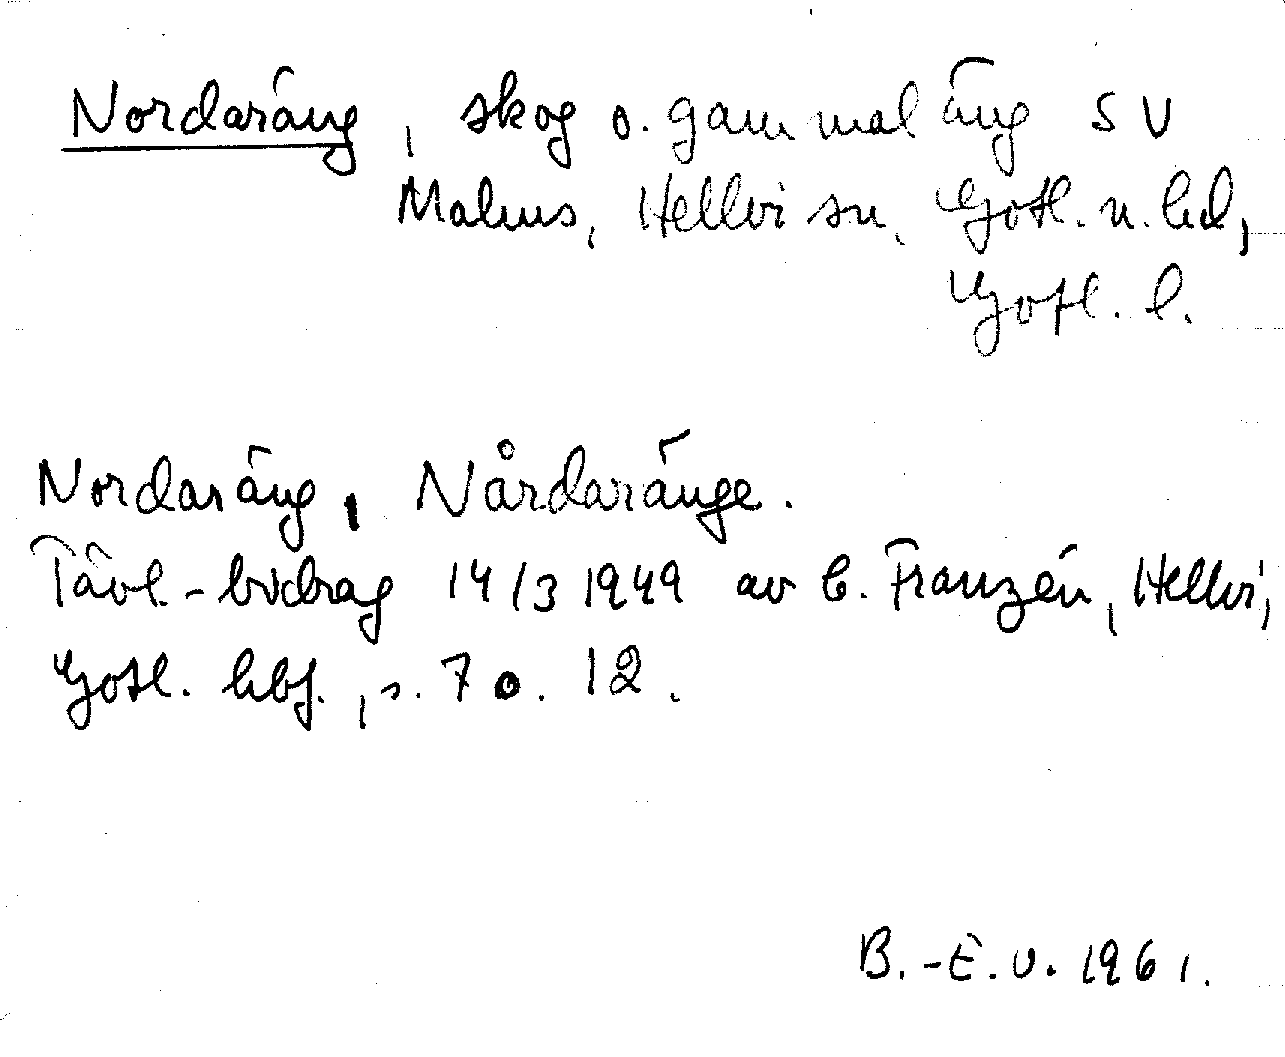 Nordaräng, skog o. gammal äng SV
Malms, Hellvi sn, Gotl. n. hd,
Gotl. l.
Nordaräng, Nårdaränge.
Tävl.-bidrag 14/3 1949 av C. Franzén, Hellvi,
Gotl. hbf., s. 7 o. 12.
B.-E. U. 1961.